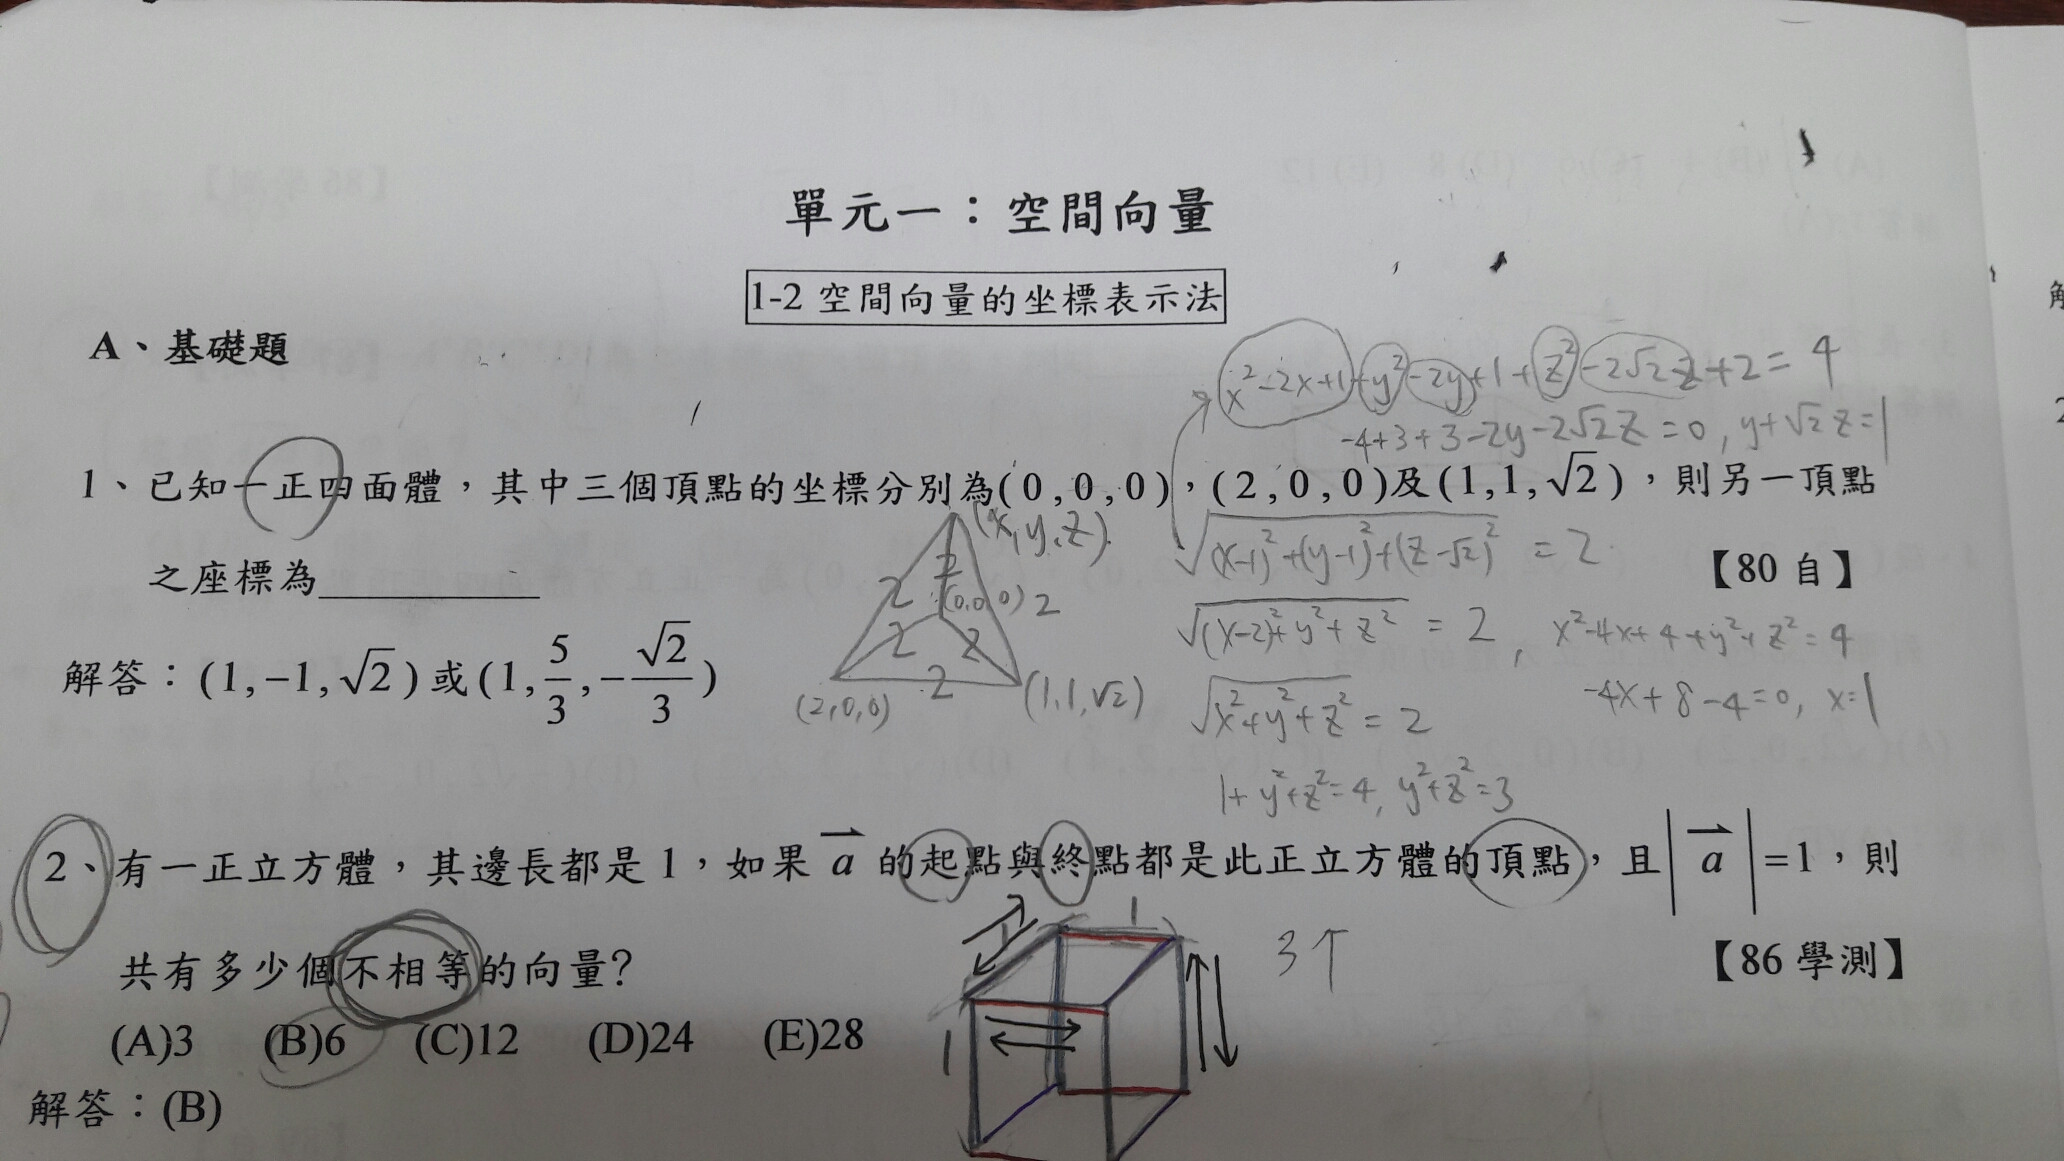 單元一：空間向量
1-2 空間向量的坐標表示法
A、基礎題
x²-2x+1+y²-2y+1+z²-2√2z+2=4
-4+3+3-2y-2√2z=0, y+√2z=1
1、已知一正四面體，其中三個頂點的坐標分別為(0,0,0)，(2,0,0)及(1,1,√2)，則另一頂點
之座標為__________ 【80 自】
(x,y,z)
2 2 (0,0,0) 2
2 2
2
(2,0,0) (1,1,√2)
√((x-1)²+(y-1)²+(z-√2)²) = 2
√((x-2)²+y²+z²) = 2, x²-4x+4+y²+z²=4
-4x+8-4=0, x=1
√(x²+y²+z²) = 2
1+y²+z²=4, y²+z²=3
解答：(1,-1,√2)或(1,5/3,-√2/3)
2、有一正立方體，其邊長都是 1，如果 a⃗ 的起點與終點都是此正立方體的頂點，且|a⃗|=1，則
共有多少個不相等的向量? 【86 學測】
1 1 3个
1
(A)3 (B)6 (C)12 (D)24 (E)28
解答：(B)